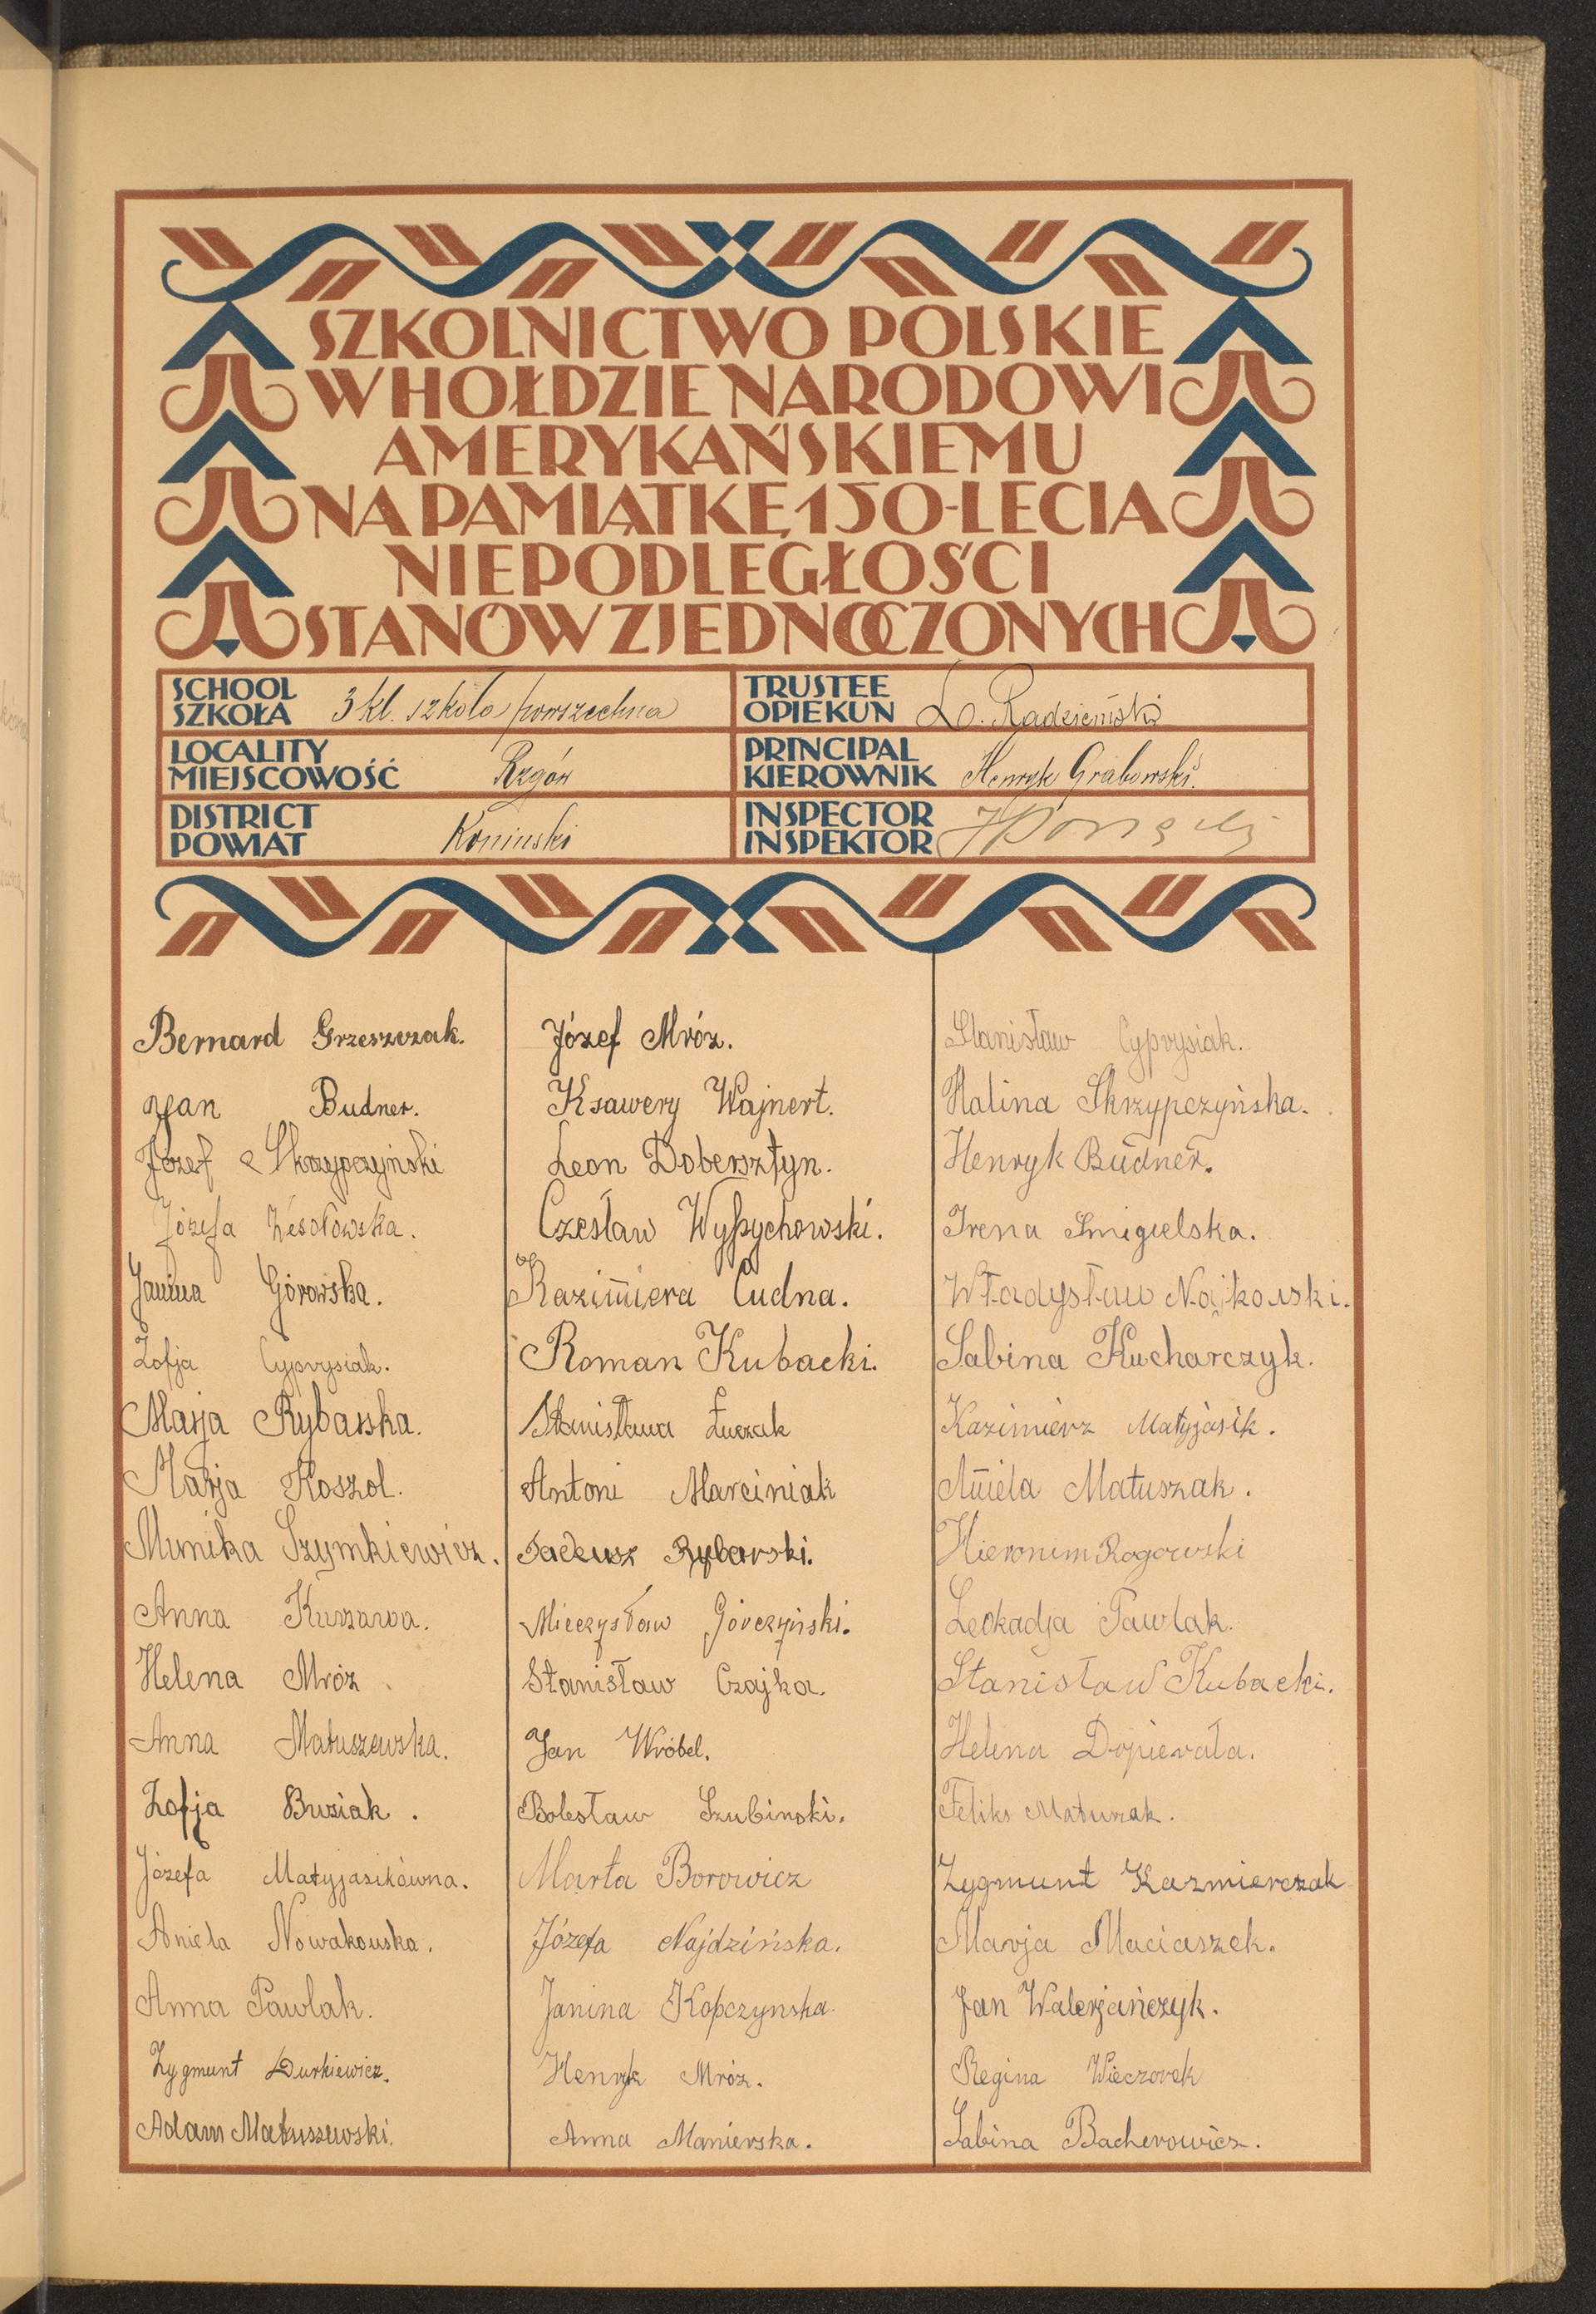 SZKOLNICTWO POLSKIE
W HOŁDZIE NARODOWI
AMERYKAŃSKIEMU
NA PAMIĄTKĘ 150-LECIA
NIEPODLEGŁOŚCI
STANÓW ZJEDNOCZONYCH
SCHOOL
SZKOŁA 3 kl. szkoła powszechna
TRUSTEE
OPIEKUN Radzieński
LOCALITY
MIEJSCOWOŚĆ Rzgów
PRINCIPAL
KIEROWNIK Henryk Grabowski.
DISTRICT
POWIAT Koninski
INSPECTOR
INSPEKTOR
Bernard Grzeszczak.
Jan Budner.
Józef Skrzypczyński
Józefa Wesołowska.
Janina Górowska.
Zofja Cyprysiak.
Marja Rybarska.
Marja Koszol.
Munika Szymkiewicz.
Anna Kuszawa.
Helena Mróz
Anna Matuszewska.
Zofja Buziak.
Józefa Matyjasikówna.
Aniela Nowakowska.
Anna Pawlak.
Zygmunt Durkiewicz.
Adam Matuszewski.
Józef Mróz.
Ksawery Wajnert.
Leon Dobersztyn.
Czesław Wypychowski.
Kazimiera Cudna.
Roman Kubacki.
Stanisława Łuczak
Antoni Marciniak
Tadeusz Rybarski.
Mieczysław Górczyński.
Stanisław Czajka.
Jan Wróbel.
Bolesław Szubinski.
Marta Borowicz
Józefa Najdzińska.
Janina Kopczynska.
Henryk Mróz.
Anna Manierska.
Stanisław Cyprysiak.
Halina Skrzypczyńska.
Henryk Budner.
Irena Smigielska.
Władysław Nojkowski.
Sabina Kucharczyk.
Kazimierz Matyjasik.
Aniela Matuszak.
Hieronim Rogowski
Leokadja Pawlak.
Stanisław Kubacki.
Helena Dopierała.
Feliks Matuszak.
Zygmunt Kazmierczak
Marja Maciaszek.
Jan Walerjańczyk.
Regina Wieczorek
Sabina Bacherowicz.